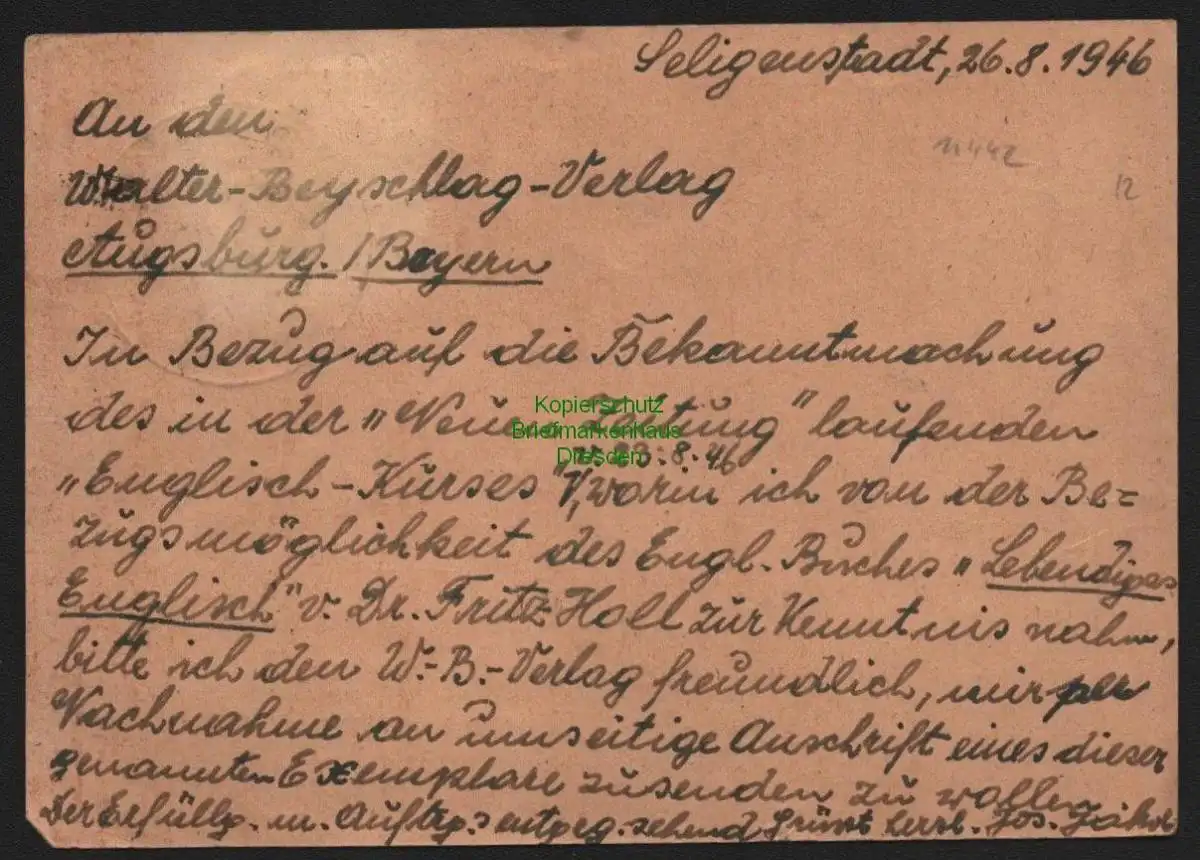 Seligenstadt, 26.8.1946
11442
12
An den
Walter-Beyschlag-Verlag
Augsburg. / Bayern
In Bezug auf die Bekanntmachung
des in der „Neuen Zeitung" laufenden
v. 23.8.46
„Englisch-Kurses", worin ich von der Be=
zugsmöglichkeit des Engl. Buches „Lebendiges
Englisch" v. Dr. Fritz Holl zur Kenntnis nahm,
bitte ich den W.-B.-Verlag freundlich, mir per
Nachnahme an umseitige Anschrift eines dieser
genannten Exemplare zusenden zu wollen
Der Erfüllg. m. Auftrgs. entgeg. sehend grüsst Jos.
Kopierschutz
Briefmarkenhaus
Dresden